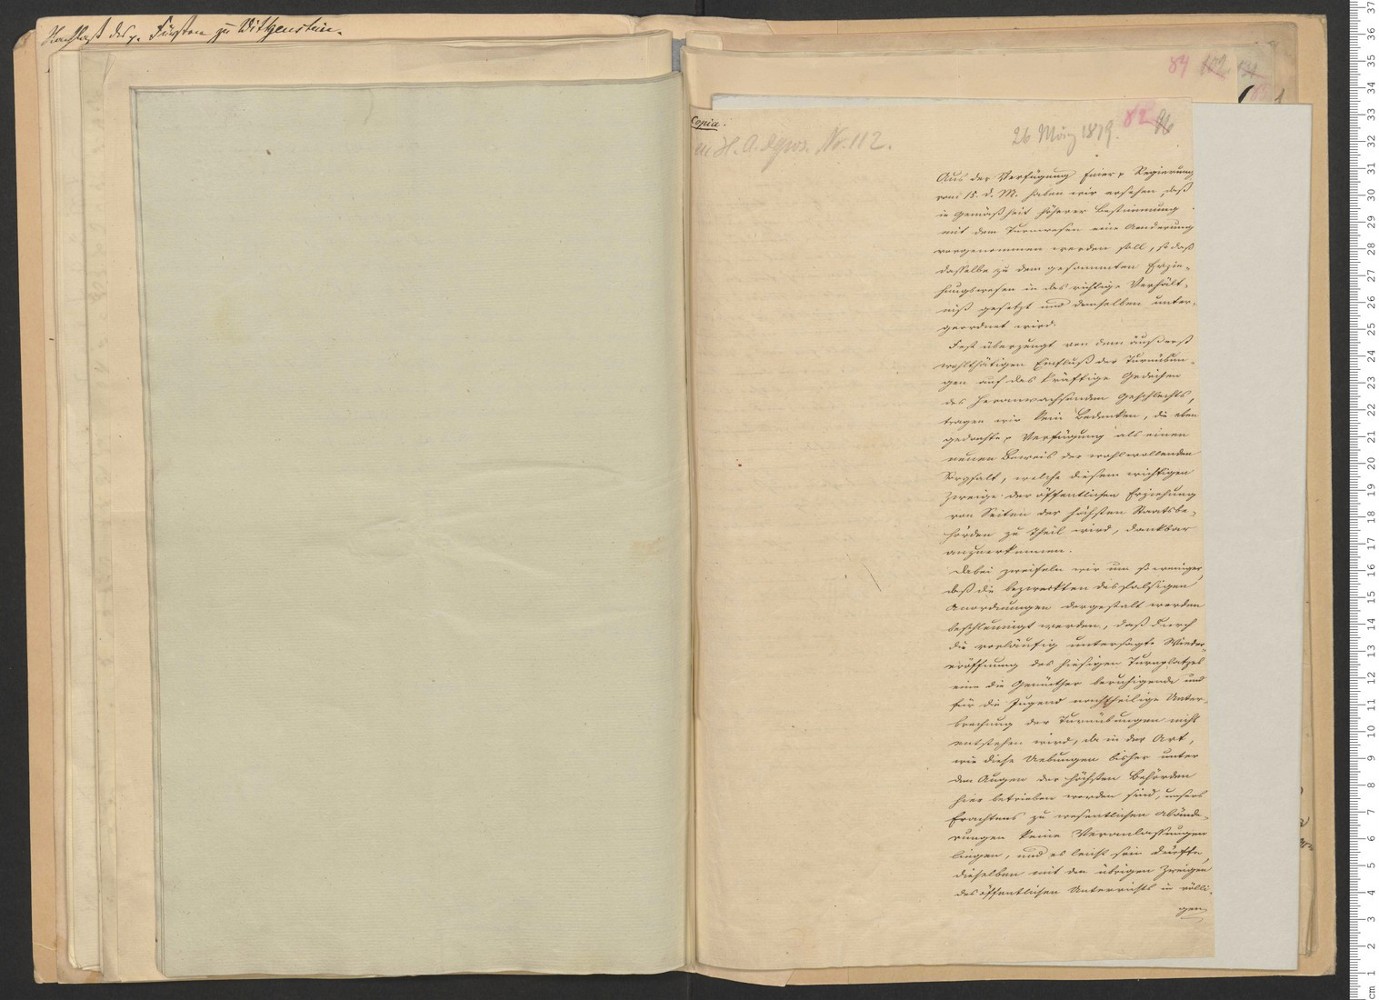 Nachlaß des p. Fürsten zu Wittgenstein.
84 102
Copia.
82 96
H. A. Nr. 112.
26 März 1819.
Aus der Verfügung Einer p Regierung
vom 15. d. M. haben wir ersehen, daß
in Gemäßheit höherer Bestimmung
mit dem Turnwesen eine Aenderung
vorgenommen werden soll, so daß
dasselbe zu dem gesammten Erzie-
hungswesen in das richtige Verhält-
niß gesetzt und demselben unter-
geordnet wird.
Fest überzeugt von dem äußerst
wohlthätigen Einfluß der Turnübun-
gen auf das kräftige Gedeihen
des heranwachsenden Geschlechts,
tragen wir kein Bedenken, die eben
gedachte p Verfügung als einen
neuen Beweis der wohlwollenden
Sorgfalt, welche diesem wichtigen
Zweige der öffentlichen Erziehung
von Seiten der höchsten Staatsbe-
hörden zu Theil wird, dankbar
anzuerkennen.
Dabei zweifeln wir um so weniger,
daß die bezweckten desfalsigen
Anordnungen dergestalt werden
beschleunigt werden, daß durch
die vorläufig untersagte Wieder-
eröffnung des hiesigen Turnplatzes
eine die Gemüther beunruhigende und
für die Jugend nachtheilige Unter-
brechung der Turnübungen nicht
entstehen wird, da in der Art,
wie diese Uebungen bisher unter
den Augen der höchsten Behörden
hier betrieben worden sind, unsers
Erachtens zu wesentlichen Abände-
rungen keine Veranlassungen
liegen, und es leicht sein dürfte,
dieselben mit den übrigen Zweigen
des öffentlichen Unterrichts in völli-
gen